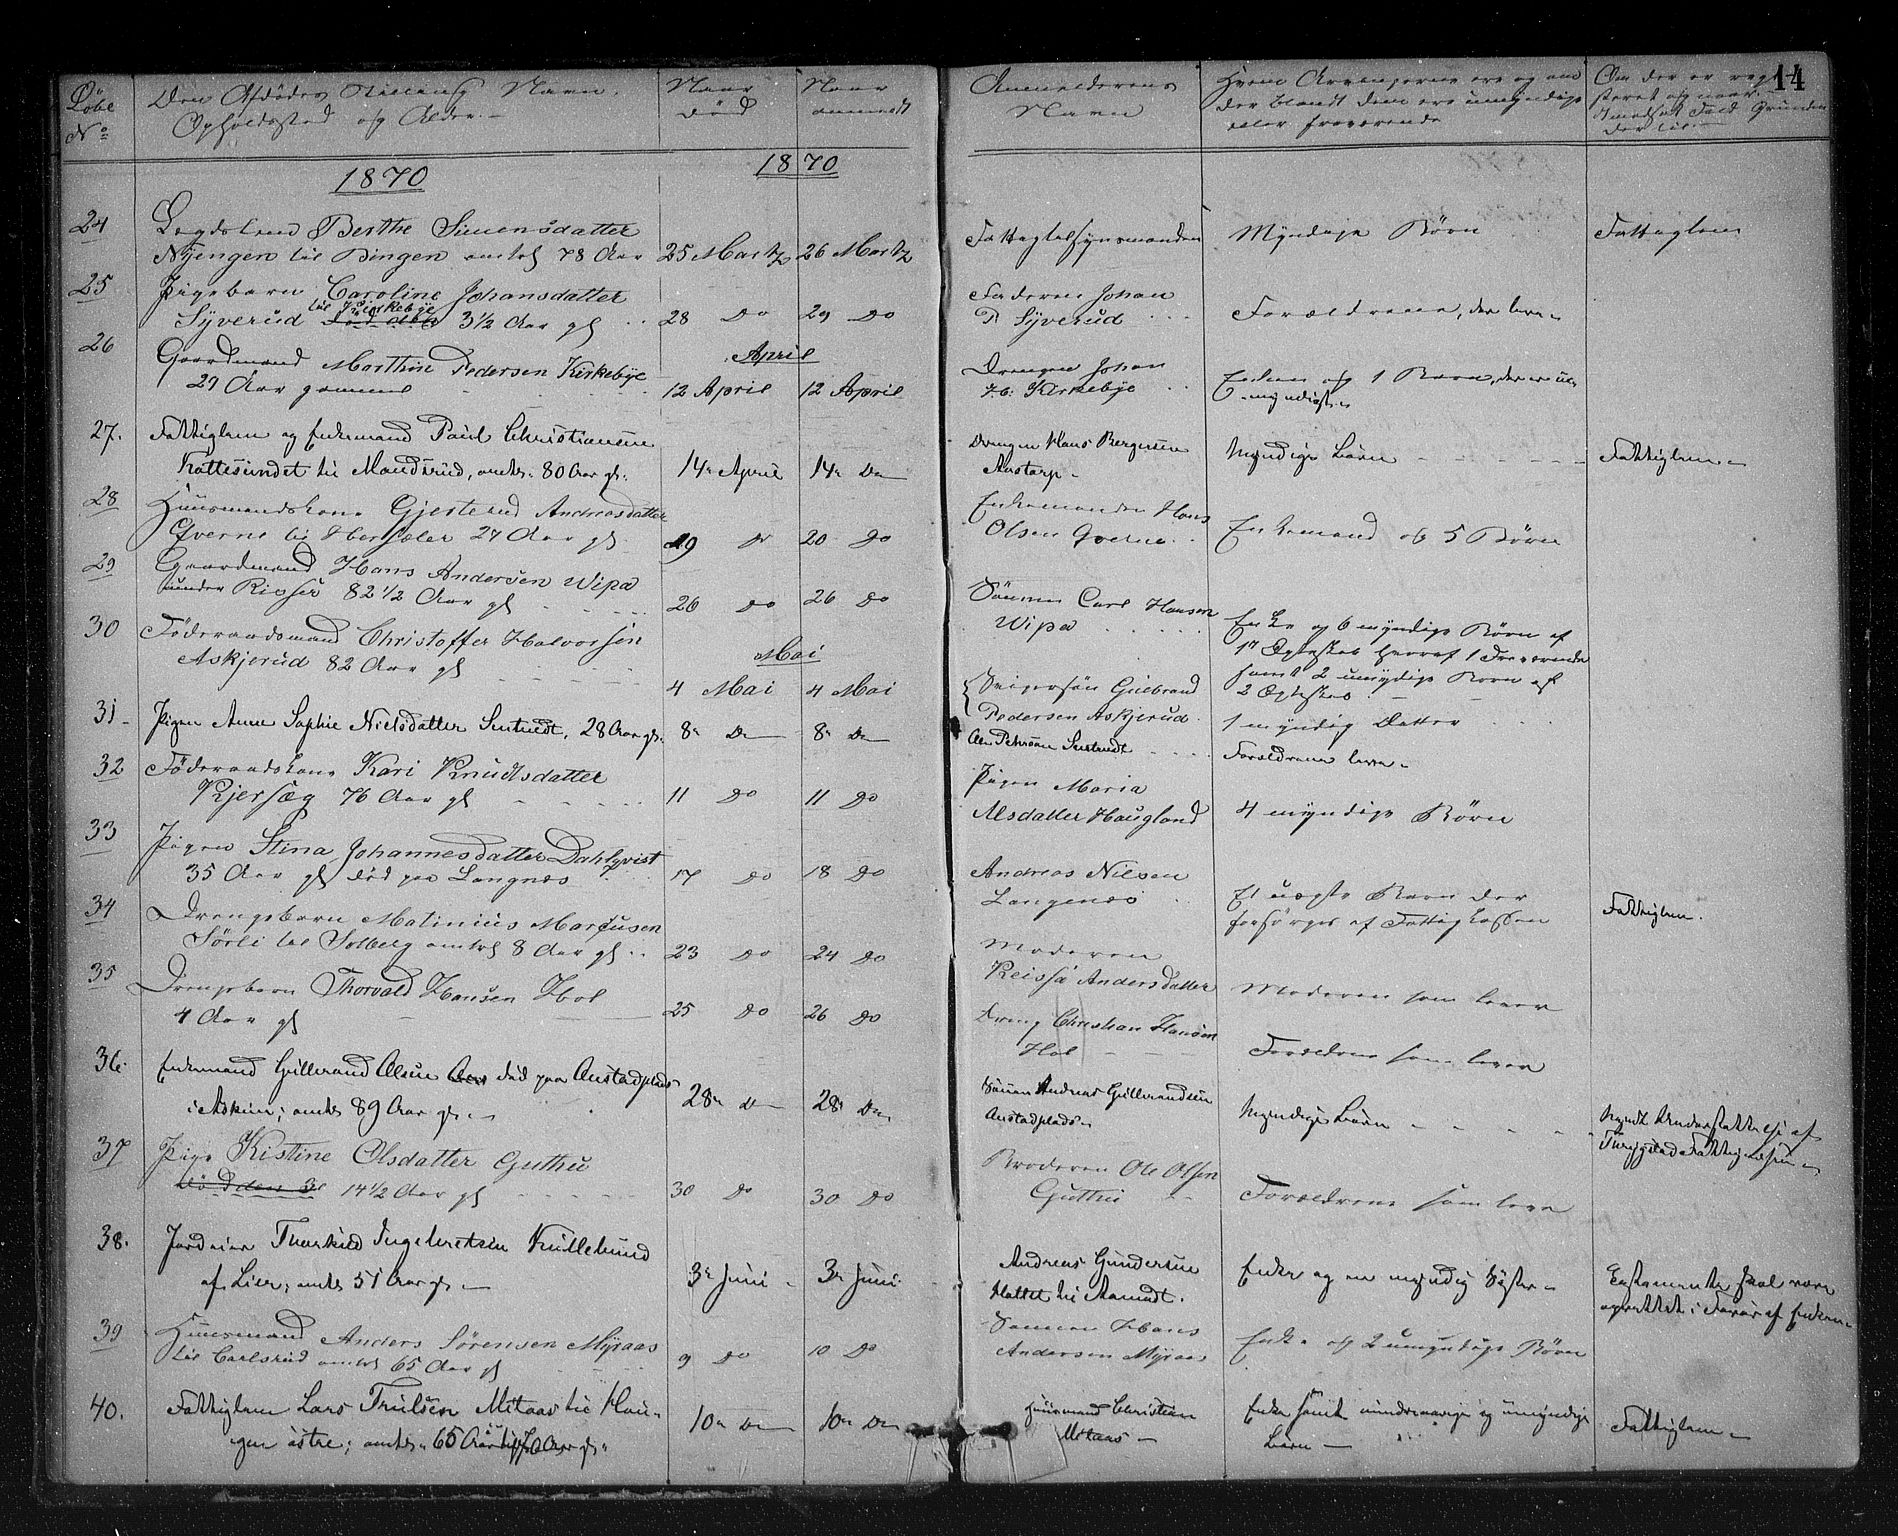 14
Løbe
No
Den Afdødes Stilling Navn,
Opholdssted og Alder.
Naar
død
Naar
anmeldt
Anmelderens
Navn
Hvem Arvingerne ere og om
der blandt dem ere umyndige
eller fraværende
Om der er regi-
streret og naar.
I modsat Fald Grunden
dertil
1870
1870
24
Lægdslem Berthe Simensdatter
Nÿengen til Bingen omtrt 78 Aar
25 Marts
26 Marts
Fattigtilsynsmanden
Myndige Børn
Fattiglem
25
Pigebarn Caroline Johansdatter
Sÿverud til Kirkebÿe 3 1/2 Aar gl
28 Do
29 Do
Faderen Johan
P Sÿverud
Forældrene, der leve
26
Gaardmand Marthin Pedersen Kirkebÿe
29 Aar gammel
April
12 April
12 April
Drengen Johan
Kirkebÿe
Enken og 1 Barn, der ere u-
myndigt
27.
Fattiglem og Enkemand Paul Christiansen
Kattesundet til Mandsrud, omtr. 80 Aar gl.
14 April
14 Do
Drengen Hans Bergersen
Aastorp
Myndige Børn
Fattiglem
28
Huusmandskone Gjertrud Andreasdatter
Qverne til Hersæter 27 Aar gl
19 Do
20 Do
Enkemanden Hans
Olsen Qverne
Enkemand og 5 Børn
29
Gaardmand Hans Andersen Wipa
under Risser 82 1/2 Aar gl
26 Do
26 Do
Sønnen Carl Hansen
Wipa
Enke og 6 myndige Børn af
1ste Ægteskab hvoraf 1 Fraværende
samt 2 umyndige Børn af
2 Ægteskab
30
Føderaadsmand Christoffer Halvorsøn
Askjerud 82 Aar gl
Mai
4 Mai
4 Mai
Svigersøn Gulbrand
Pedersen Askjerud
1 myndig Datter
31
Pigen Anne Sophie Nielsdatter 28 Aar gl.
8 Do
8 Do
Forældrene leve
32
Føderaadskone Kari Knudtsdatter
Kjersæg 76 Aar gl
11 Do
11 Do
Pigen Maria
Alsdatter Haugland
4 myndige Børn
33
Pigen Stina Johannesdatter Dahlqvist
35 Aar gl død paa Langnes
17 Do
18 Do
Andreas Nilsen
Langenes
Et uægte Barn der
forsørges af Fattigkassen
Fattiglem.
34
Drengebarn Matinius Marcusen
Sørli til Solberg omtrt 8 Aar gl
23 Do
24 Do
Moderen
Reissa Andersdatter
Moderen som lever
35
Drengebarn Thorvald Hansen Hol
4 Aar gl
25 Do
26 Do
Dreng Christian Hansen
Hol
Forældrene som lever
36.
Enkemand Gulbrand Olsen død paa Aastadplads
i Askim; omtr 89 Aar gl.
28 Do
28 Do
Sønnen Andreas Gulbrandsen
Aastadplads
Myndige Børn
Nyndt Understøttelse af
Trygstad Fattigvæsen
37
Pige Kistine Olsdatter Guthu
14 1/2 Aar gl
30 Do
30 Do
Broderen Ole Olsen
Guthu
Forældrene som leve
38.
Jordeier Thorkild Ingebretsen Kullebund
af Lier; omtr 51 Aar gl.
3 Juni
3 Juni
Andreas Gundersen
til Aamodt.
Enke og en myndig Søster
Testamente skal være
oprettet i Favør af Enken
39
Huusmand Anders Sørensen Mÿraas
til Carlsrud omtrt 65 Aar gl
9 Do
10 Do
Sønnen Hans
Andersen Mÿraas
Enke og 2 umyndige Børn
40.
Fattiglem Lars Trulsen Mitaas til Hau-
gen østre; omtr. 65 Aar
10 Do
10 Do
Huusmand Christian
Mitaas
Enke samt mindreaarige og umyndige
Børn
Fattiglem